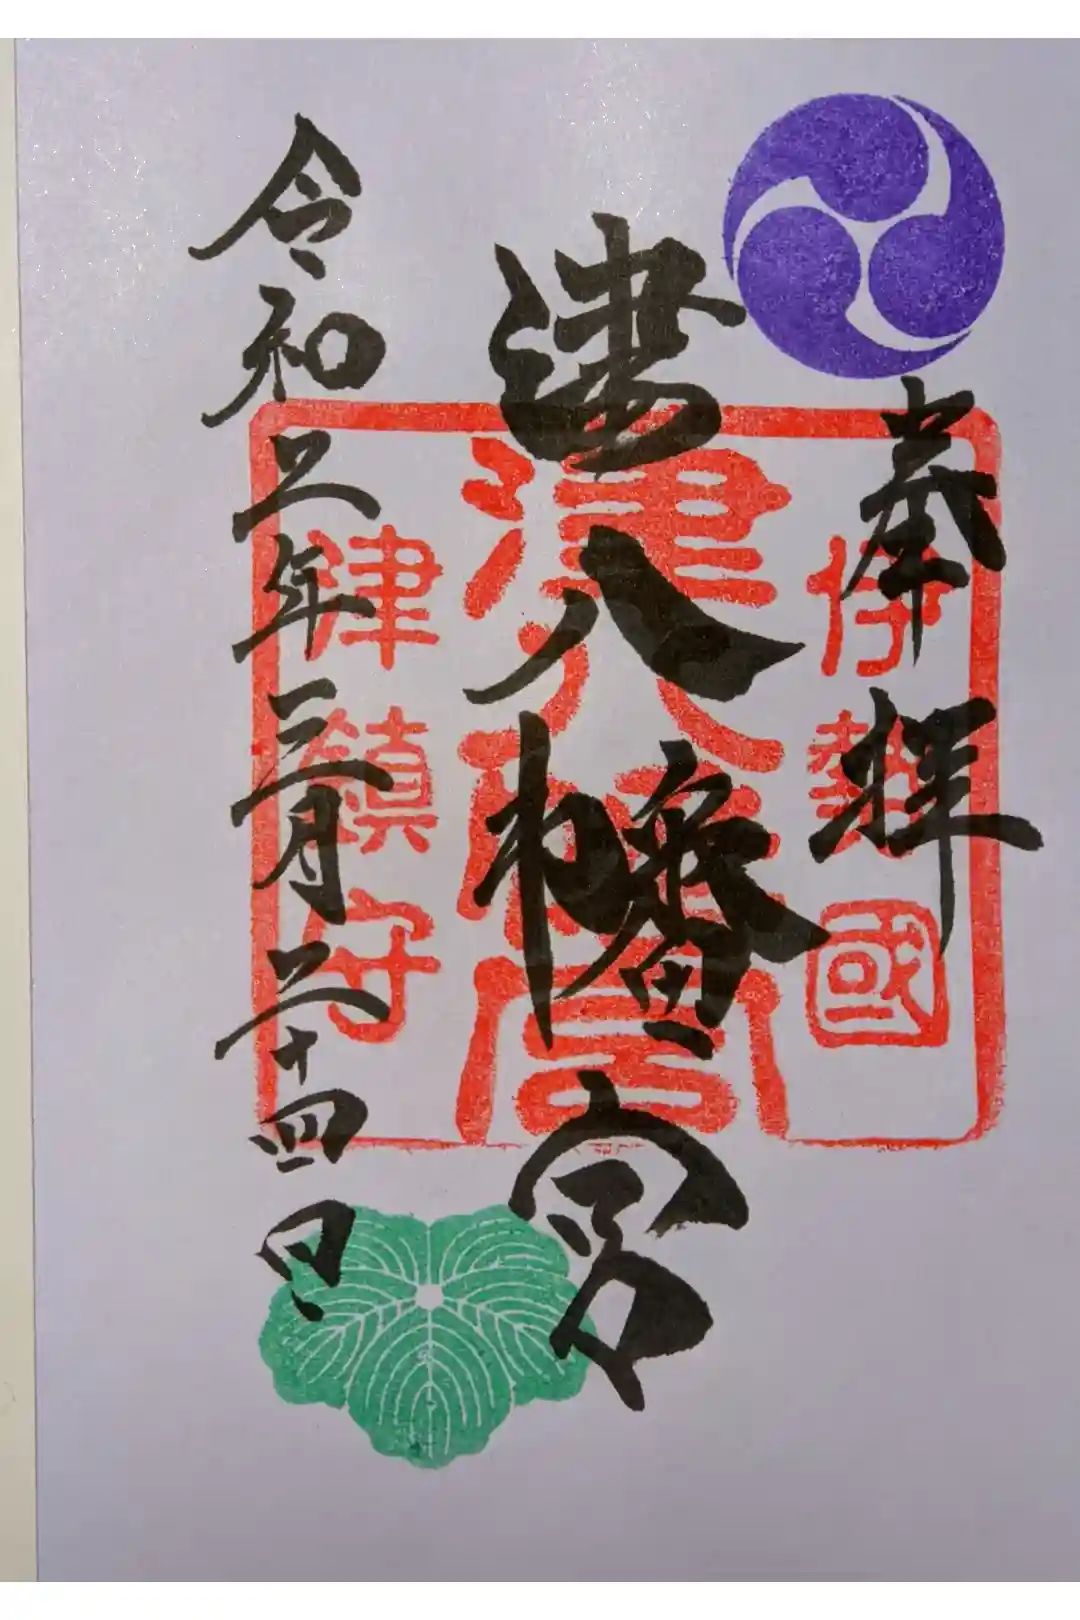 奉拝
伊勢國
津八幡宮
津八幡宮
令和二年三月二十四日
津鎮守